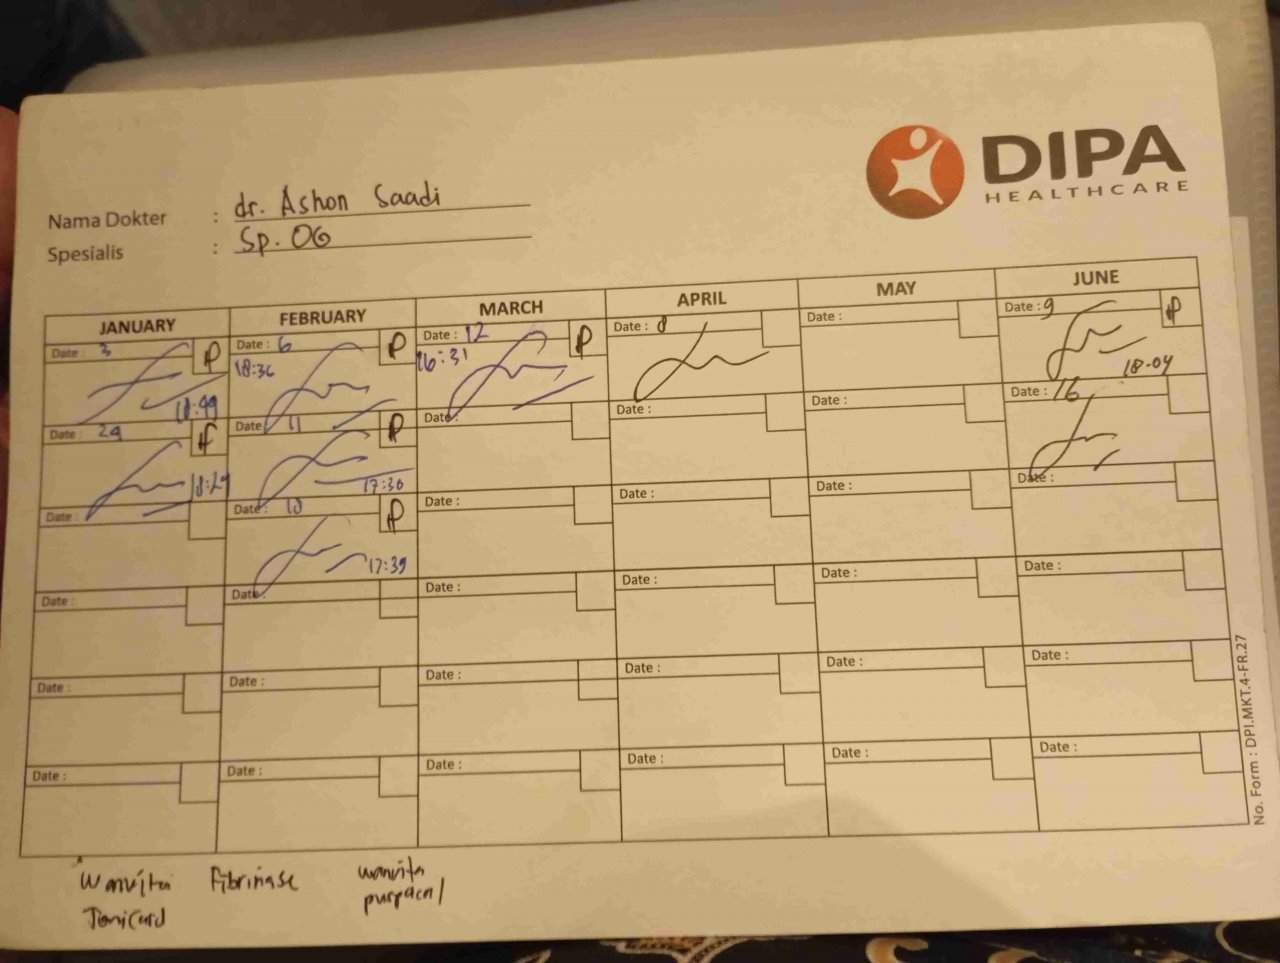 DIPA
HEALTHCARE
Nama Dokter : dr. Ashon Saadi
Spesialis : Sp. OG
JANUARY FEBRUARY MARCH APRIL MAY JUNE
Date : 3 Date : 6 Date : 12 Date : 8 Date : Date : 9
18:36 16:31
18-04
Date : 29 Date : 11 Date : Date : Date : Date : 16
18:29 17:30
Date : Date : 18 Date : Date : Date : Date :
17:39
Date : Date : Date : Date : Date : Date :
Date : Date : Date : Date : Date : Date :
Date : Date : Date : Date : Date : Date :
No. Form : DPI.MKT.4-FR.27
Fibrinase wanvita